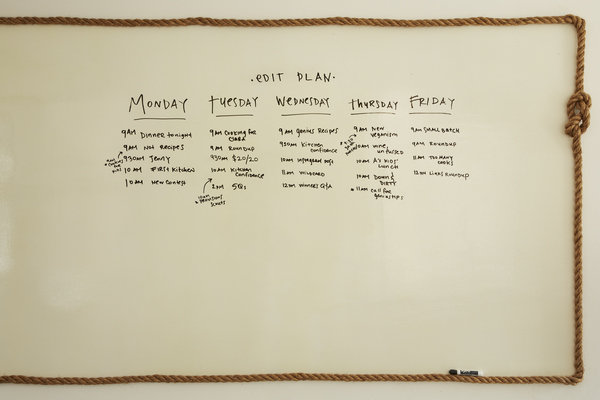 ·EDIT PLAN·
MONDAY
9AM DINNER tonight
9AM NOT RECIPES
930AM JENNY
10AM FIRST KITCHEN
10AM NEW CONTEST
TUESDAY
9AM COOKING FOR
CLARA
9AM ROUNDUP
930AM $20/20
10AM KITCHEN
CONFIDENCE
2PM 5QS
10AM
WEDNESDAY
9AM GENIUS RECIPES
930AM KITCHEN
CONFIDENCE
10AM INSTAGRAM POST
11AM WILDCARD
12PM WINNERS Q&A
THURSDAY
9AM NEW
VEGANISM
10AM WINE,
UNFUSSED
10AM A'S KIDS'
LUNCH
10AM DOWN &
DIRTY
11AM CALL FOR
GENIUS TIPS
FRIDAY
9AM SMALL BATCH
9AM ROUNDUP
11AM TOO MANY
COOKS
12PM LINKS ROUNDUP